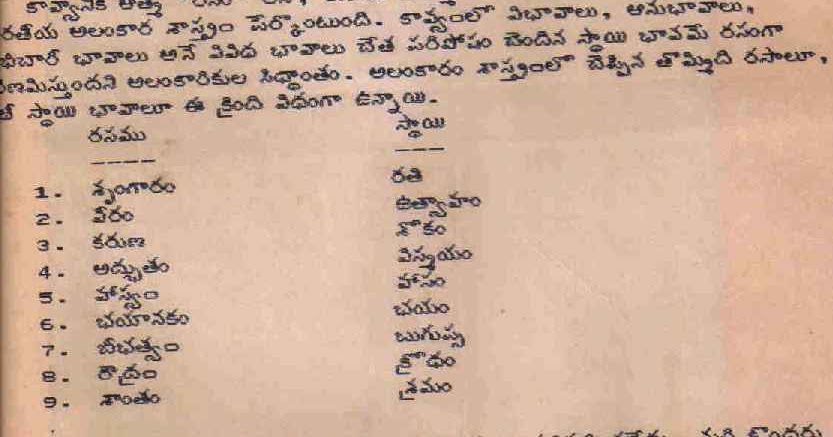 కావ్యానికి ఆత్మ
రతీయ అలంకార శాస్త్రం పేర్కొంటుంది. కావ్యంలో విభావాలు, అనుభావాలు,
భిచారి భావాలు అనే వివిధ భావాలు చేత పరిపోషం చెందిన స్థాయి భావమే రసంగా
ణమిస్తుందని అలంకారికుల సిద్ధాంతం. అలంకారం శాస్త్రంలో చెప్పిన తొమ్మిది రసాలూ,
టి స్థాయి భావాలూ ఈ క్రింది విధంగా ఉన్నాయి.
రసము స్థాయి
---- ---
1. శృంగారం రతి
2. వీరం ఉత్సాహం
3. కరుణ శోకం
4. అద్భుతం విస్మయం
5. హాస్యం హాసం
6. భయానకం భయం
7. బీభత్సం బుగుప్స
8. రౌద్రం క్రోధం
9. శాంతం శ్రమం